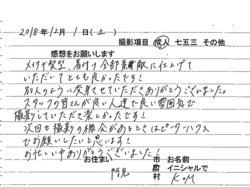 2018年12月1日(土)
撮影項目 成人 七五三 その他
感想をお願いします
メイクや髪型、着付け全部素敵に仕上げて
いただいてとても良かったです!
別人のように変身させていただきありがとうございました。
スタッフの皆さんが良い人達で良い雰囲気で
撮影していただき楽しかったです!
次回も撮影の機会があるときはピンクハウス
でお願いしたいと思います!
お忙しい中ありがとうございました!
お住まい 市 お名前
町 イニシャルで
阿見 村 K.M